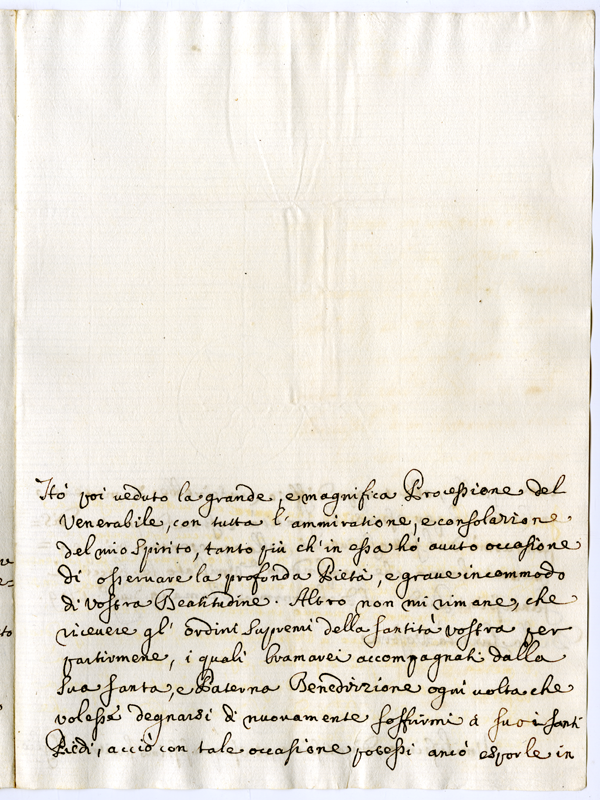 Hò poi veduto la grande, e magnifica Processione del
Venerabile, con tutta l'ammiratione, e consolazione
del mio Spirito, tanto più ch'in essa hò avuto occasione
di osservare la profonda Pietà, e grave incommodo
di Vostra Beatitudine. Altro non mi rimane, che
ricevere gl'ordini supremi della Santità Vostra per
partirmene, i quali bramarei accompagnati dalla
Sua Santa, e Paterna Benedizione ogni volta che
volesse degnarsi di nuovamente soffrirmi a suoi Santi
Piedi, acciò con tale occasione potessi ancò esporle in